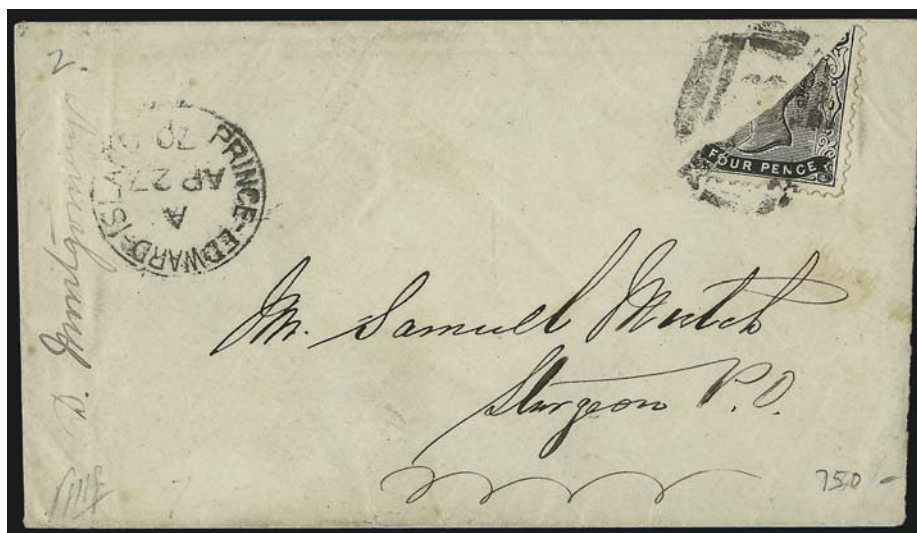 2.
PRINCE-EDWARD-ISLAND
A
AP 27
70
FOUR PENCE
Mr. Samuel Mutch
Sturgeon P.O.
750 -